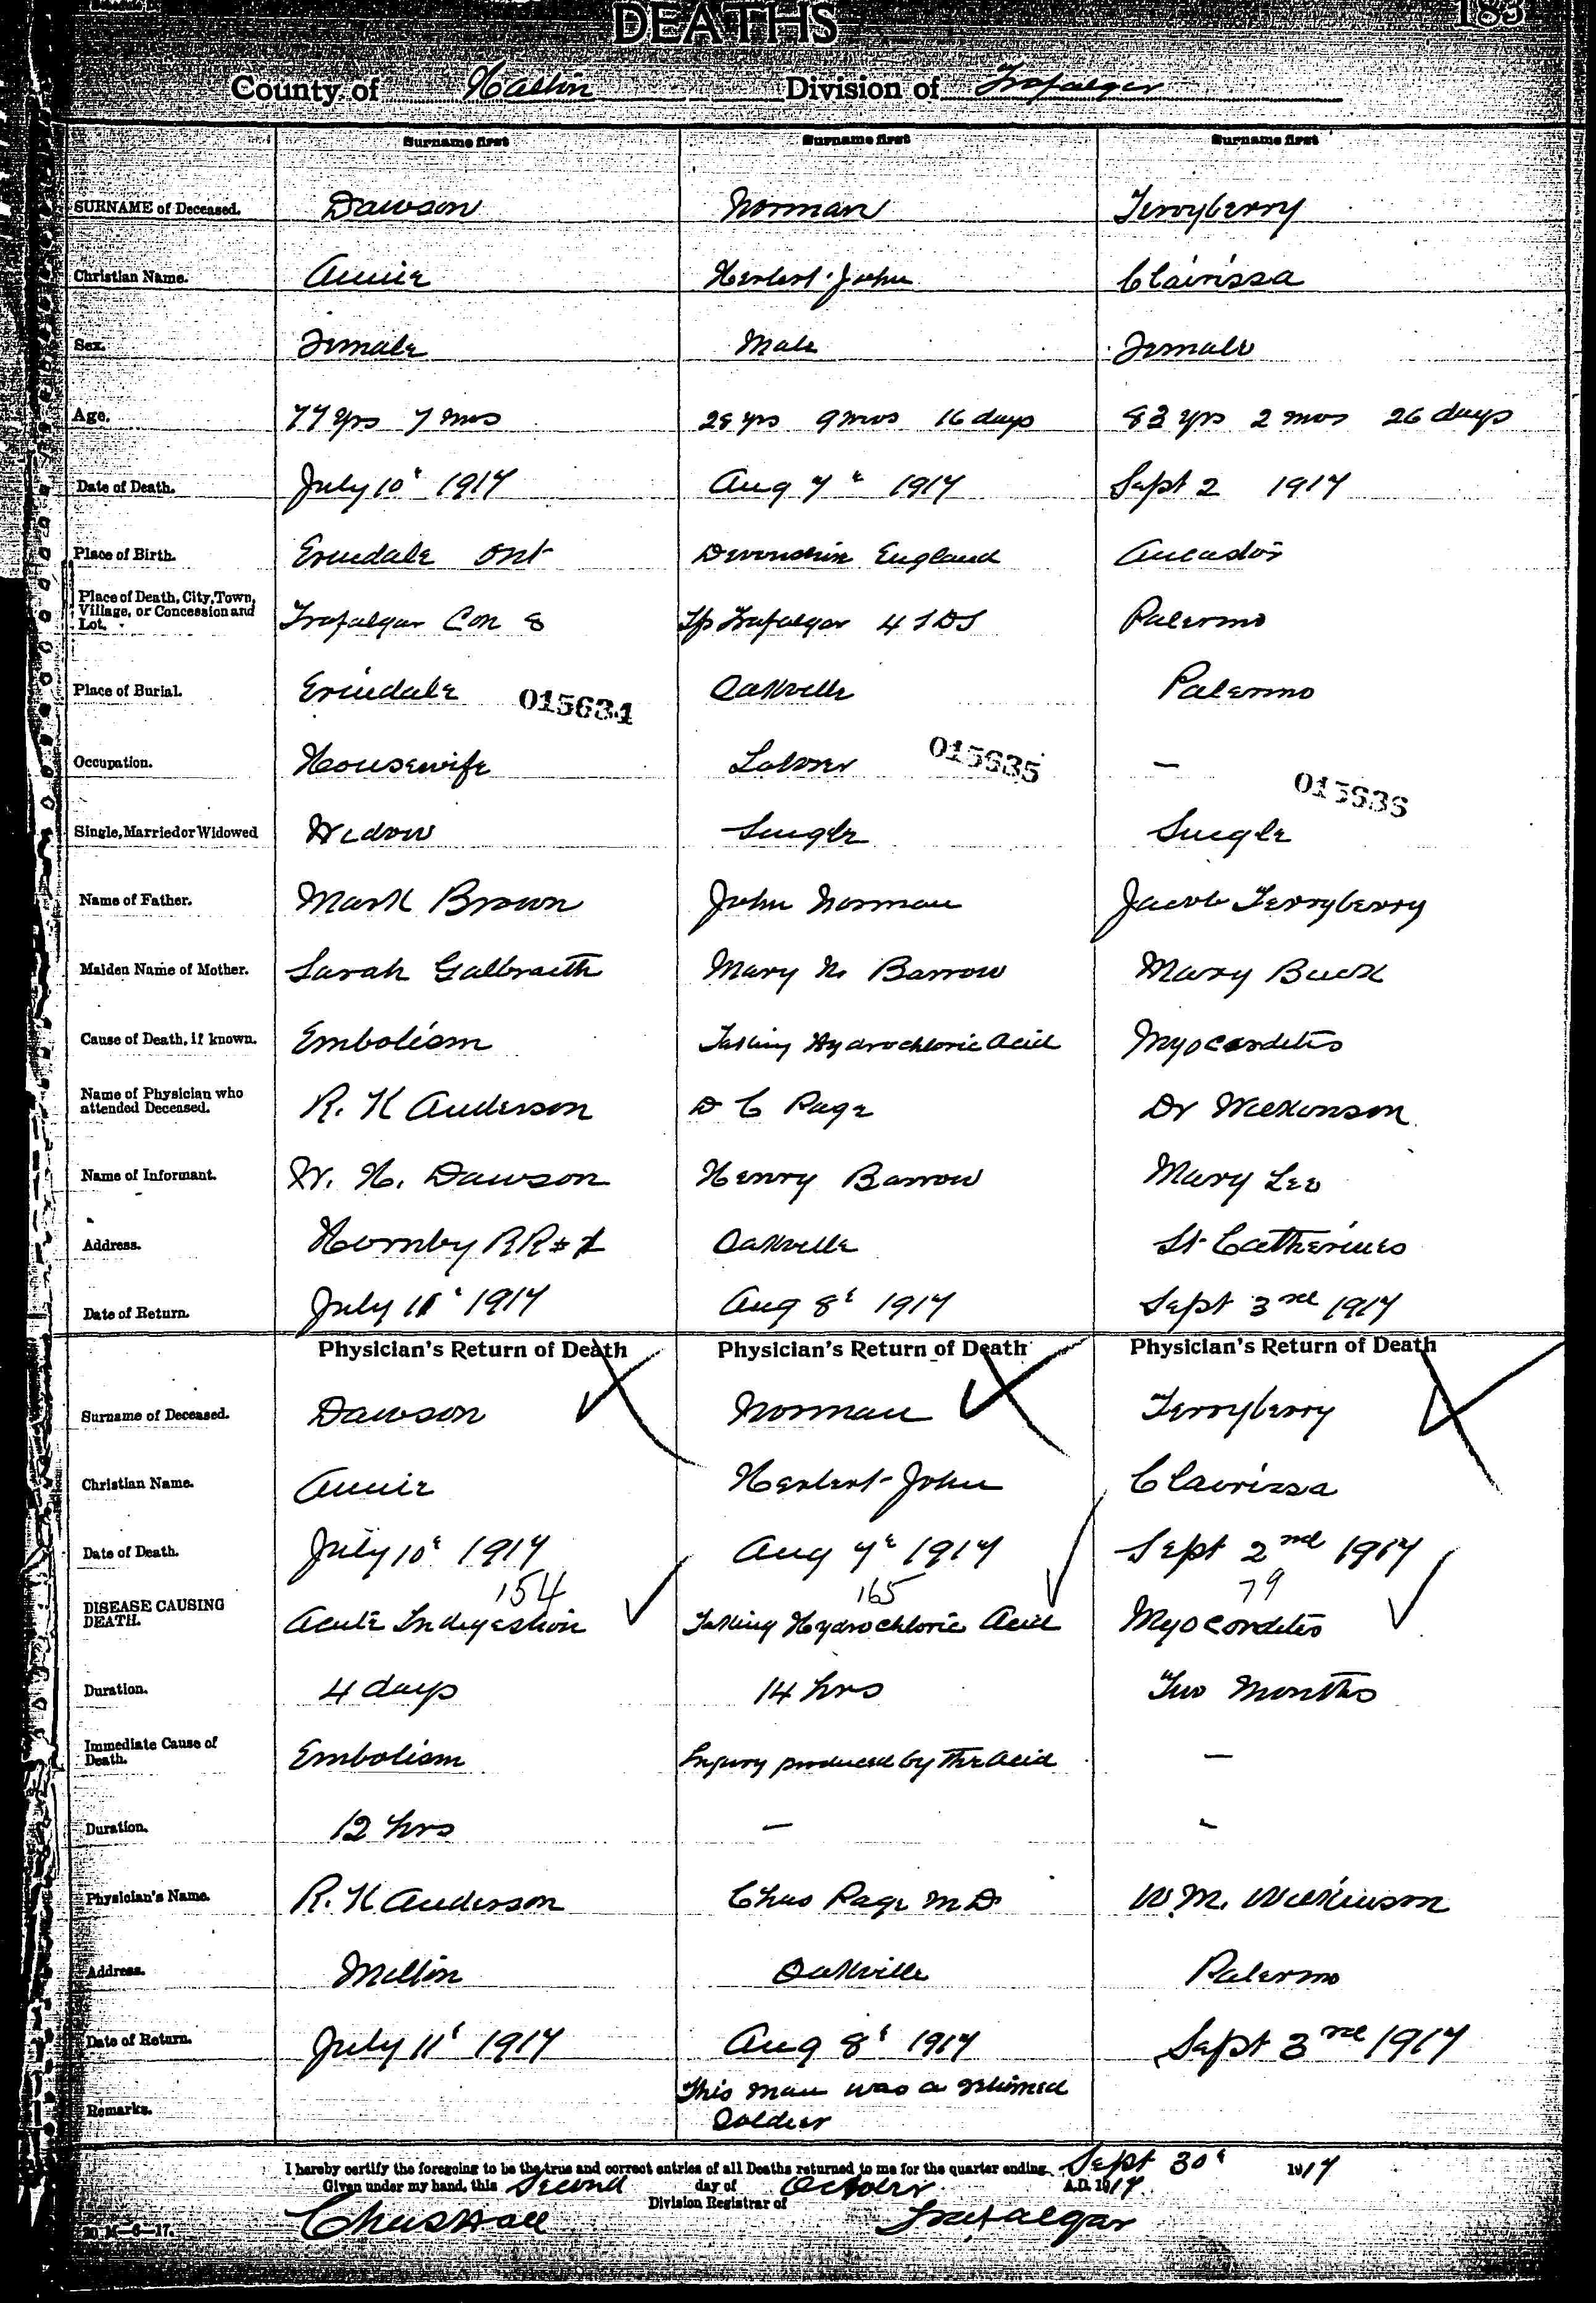 DEATHS 183
County of Halton Division of Trafalgar
Surname first Surname first Surname first
SURNAME of Deceased. Dawson Norman Terryberry
Christian Name. Annie Herbert John Clairissa
Sex. Female Male Female
Age. 77 yrs 7 mos 28 yrs 9 mos 16 days 83 yrs 2 mos 26 days
Date of Death. July 10t 1917 Aug 7t 1917 Sept 2 1917
Place of Birth. Erindale Ont Devonshire England
Place of Death, City, Town, Village, or Concession and Lot. Trafalgar Con 8 Tp Trafalgar 4 S D S Palermo
Place of Burial. Erindale Oakville Palermo
015634
Occupation. Housewife Laborer —
015635
015636
Single, Married or Widowed Widow Single Single
Name of Father. Mark Brown John Norman Jacob Terryberry
Maiden Name of Mother. Sarah Galbraith Mary N. Barrow Mary Buck
Cause of Death, if known. Embolism Taking Hydrochloric Acid Myocarditis
Name of Physician who attended Deceased. R. K Anderson D C Page Dr Wilkinson
Name of Informant. W. H. Dawson Henry Barrow Mary Lee
Address. Hornby RR# Oakville St Catherines
Date of Return. July 11t 1917 Aug 8t 1917 Sept 3rd 1917
Physician's Return of Death Physician's Return of Death Physician's Return of Death
Surname of Deceased. Dawson Norman Terryberry
Christian Name. Annie Herbert John Clairissa
Date of Death. July 10t 1917 Aug 7t 1917 Sept 2nd 1917
154 165 79
DISEASE CAUSING DEATH. Acute Indigestion Taking Hydrochloric Acid Myocarditis
Duration. 4 days 14 hrs Two Months
Immediate Cause of Death. Embolism Injury produced by the Acid —
Duration. 12 hrs — -
Physician's Name. R. K Anderson Chas Page M D W. M. Wilkinson
Address. Milton Oakville Palermo
Date of Return. July 11t 1917 Aug 8t 1917 Sept 3rd 1917
Remarks. This man was a returned
Soldier
I hereby certify the foregoing to be the true and correct entries of all Deaths returned to me for the quarter ending Sept 30t 1917
Given under my hand, this Second day of October A.D. 1917
Division Registrar of
Chas Hall Trafalgar
20 M—6—17.